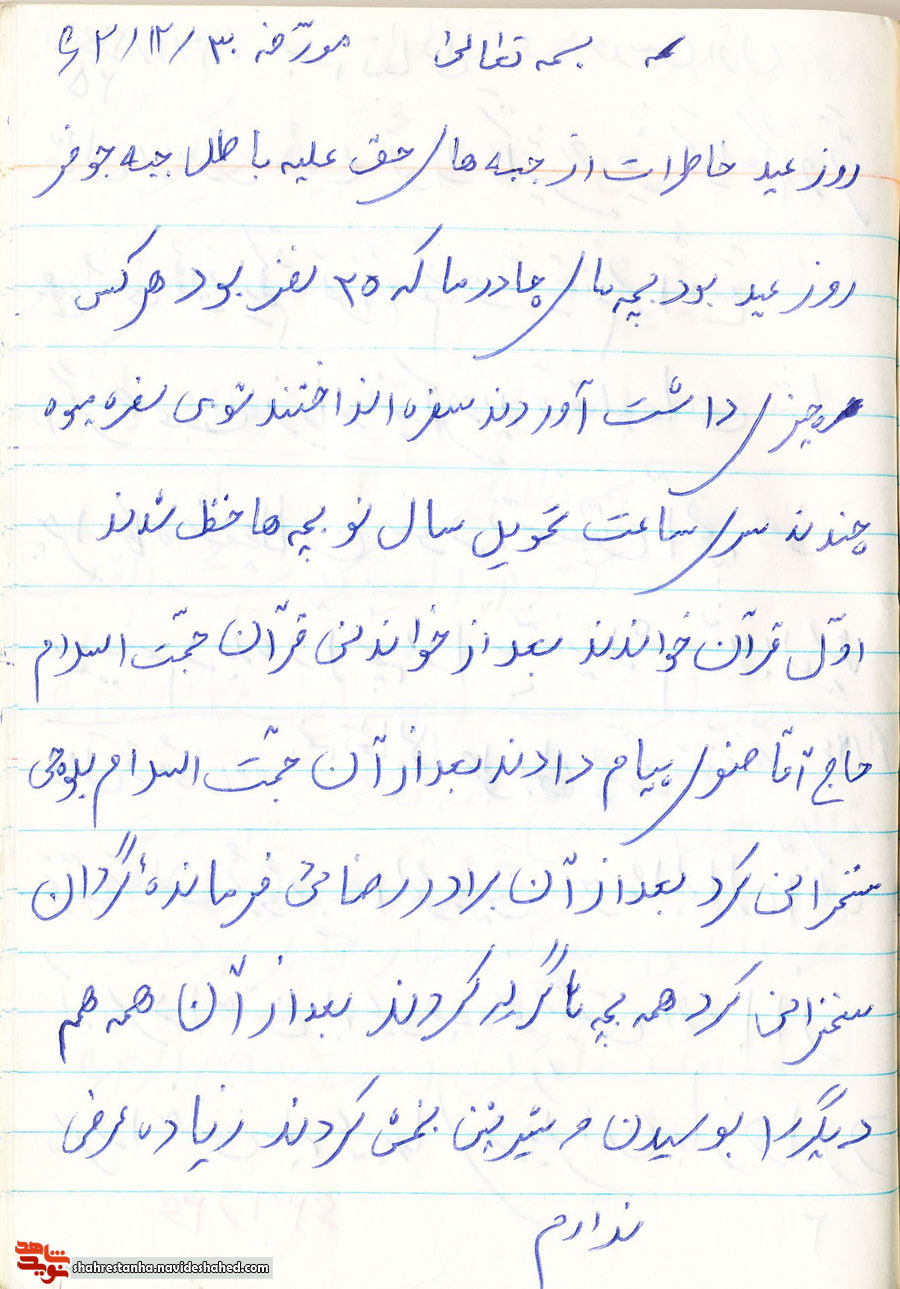 بسمه تعالی مورّخه ۶۲/۱۲/۳۰
روز عید خاطرات از جبهه های حق علیه باطل جبهه جوفر
روز عید بود بچه های چادر ما که ۳۵ نفر بود هر کس
هر چیزی داشت آوردند سفره انداختند توی سفره میوه
چندند سر ساعت تحویل سال نو بچه ها حظ شدند
اوّل قرآن خواندند بعد از خواندنی قرآن حجّت السلام
حاج آقا صنوی پیام دادند بعد از آن حجّت السلام بلوچی
سخنرانی کرد بعد از آن برادر رضائی فرماندهٔ گردان
سخنرانی کرد همه بچه ها گریه کردند بعد از آن همه هم
دیگر را بوسیدن و شیرینی بخش کردند زیاده عرضی
ندارم
نوید شاهد
shahrestanha.navideshahed.com